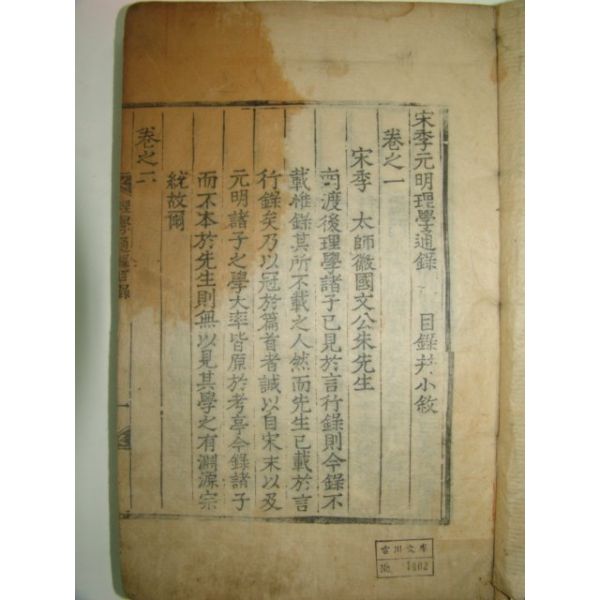 宋季元明理學通錄 目錄幷小敘
卷之一
宋季 太師徽國文公朱先生
南渡後理學諸子已見於言行錄則今錄不
載惟錄其所不載之人然而先生已載於言
行錄矣乃以冠於篇首者誠以自宋末以及
元明諸子之學大率皆原於考亭今錄諸子
而不本於先生則無以見其學之有淵源宗
統故爾
卷之二
理學通錄目錄
一
文庫
No. 1802